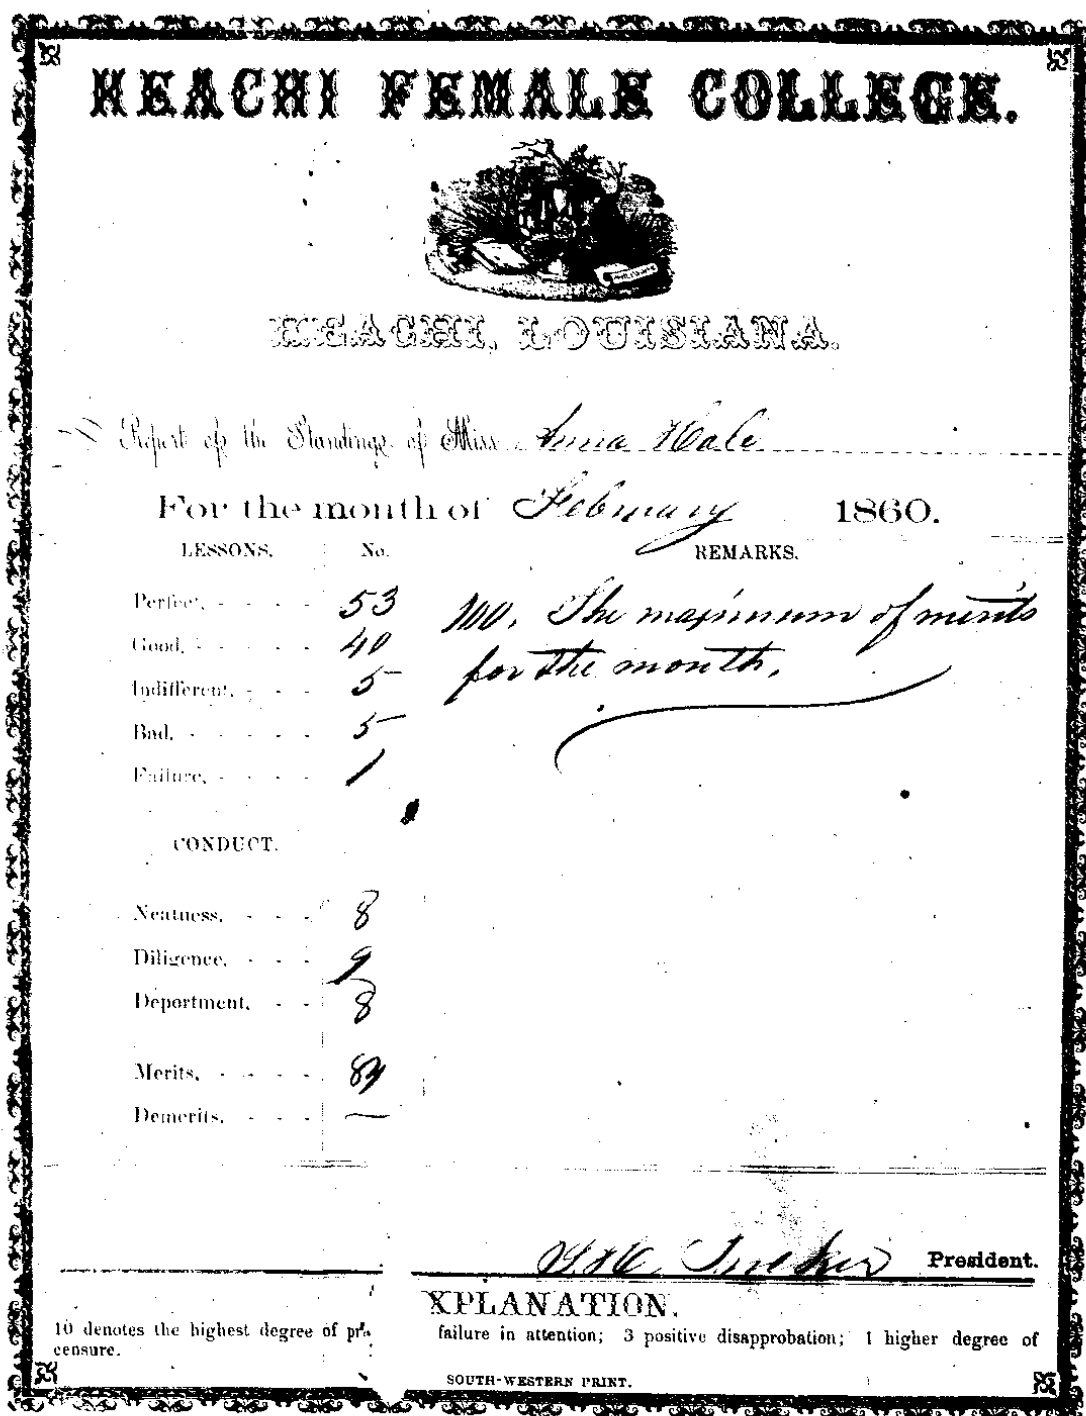 KEACHI FEMALE COLLEGE.
KEACHI, LOUISIANA.
Report of the Standing of Miss Anna Hale
For the month of February 1860.
LESSONS. No. REMARKS.
Perfect, - - - - 53 100. The maximum of merits
Good, - - - - 40 for the month.
Indifferent, - - - 5
Bad, - - - - 5
Failure, - - - - 1
CONDUCT.
Neatness, - - - 8
Diligence, - - - 9
Deportment, - - 8
Merits, - - - - 84
Demerits, - - - —
Tucker President.
XPLANATION.
10 denotes the highest degree of failure in attention; 3 positive disapprobation; 1 higher degree of
censure.
SOUTH-WESTERN PRINT.